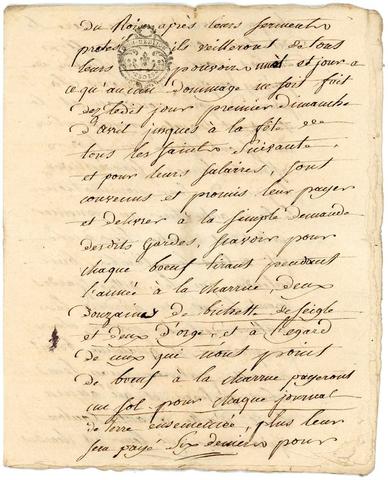 Du Roi après leurs serments
ils veilleront de tous
leurs pouvoirs nuit et jour a
ce qu'aucun dommage ne soit fait
dez ledit jour premier dimanche
d'avril jusques à la fête
tous les saints suivante
et pour leurs salaires, sont
convenus et promis leur payer
et delivrer à la simple demande
desdits Gardes, scavoir pour
chaque boeuf tirant pendant
l'année à la charrue, deux
Douzaines de bichets de seigle
et deux d'orge, et à l'egard
de ceux qui nont point
de boeuf à la charrue payeront
un sol pour chaque journal
de terre ensemencée, plus leur
sera payé six deniers pour